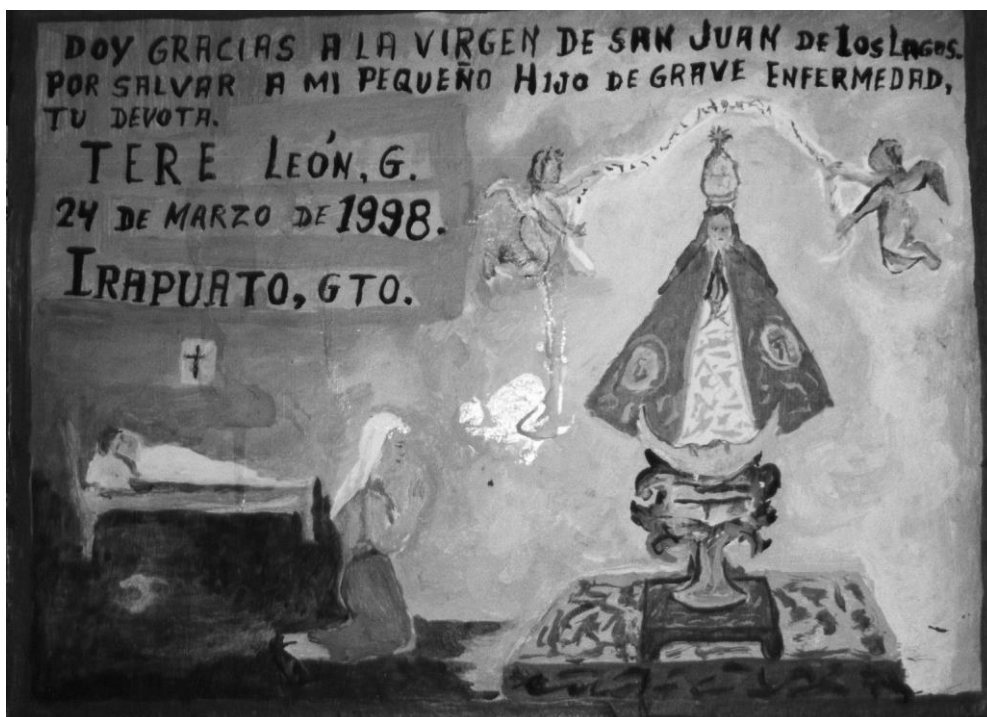 DOY GRACIAS A LA VIRGEN DE SAN JUAN DE LOS LAGOS.
POR SALVAR A MI PEQUEÑO HIJO DE GRAVE ENFERMEDAD,
TU DEVOTA.
TERE LEÓN, G.
24 DE MARZO DE 1998.
IRAPUATO, GTO.